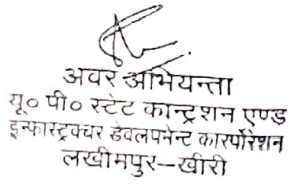 अवर अभियन्ता
यू० पी० स्टेट कान्ट्रशन एण्ड
इन्फारस्ट्रक्चर डेवलपमेन्ट कारर्पोरेशन
लखीमपुर–खीरी